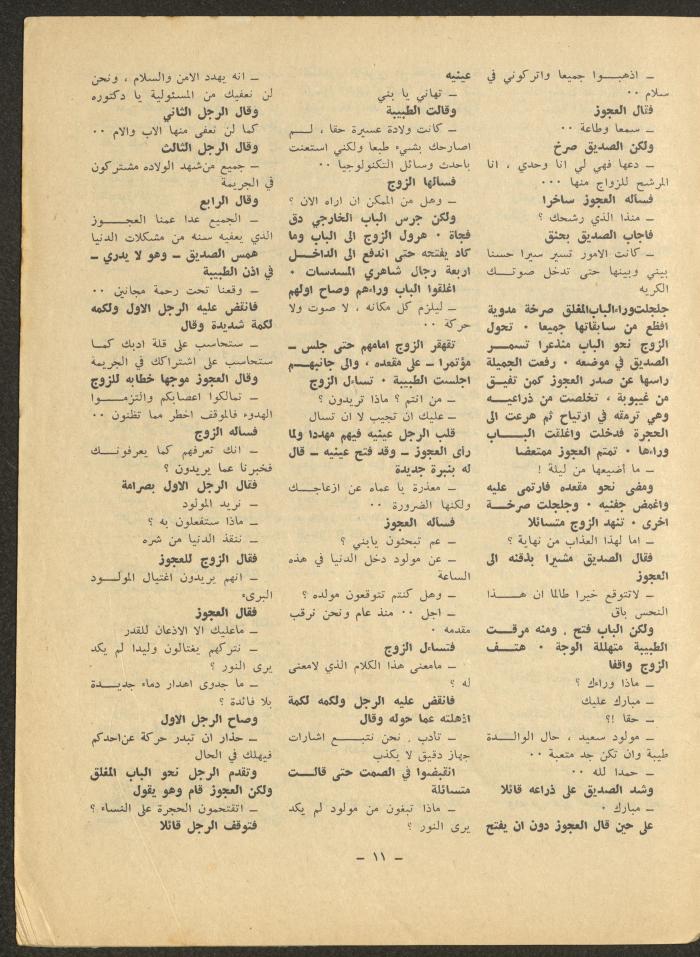 ـ اذهبـــوا جميعا واتركوني في
سلام ٠٠
فقال العجوز
ـ سمعا وطاعة ٠٠
ولكن الصديق صرخ
ـ دعها فهي لي انا وحدي ، انا
المرشح للزواج منها ٠٠٠
فساله العجوز ساخرا
ـ منذا الذي رشحك ؟
فاجاب الصديق بحنق
ـ كانت الامور تسير سيرا حسنا
بيني وبينها حتى تدخل صوتـــك
الكريه
جلجلت وراء الباب المغلق صرخة مدوية
افظع من سابقاتها جميعا ٠ تحول
الزوج نحو الباب منذعرا تسمـــر
الصديق في موضعه ٠ رفعت الجميلة
راسها عن صدر العجوز كمن تفيـق
من غيبوبة ، تخلصت من ذراعيـــه
وهي ترمقه في ارتياح ثم هرعت الى
الحجرة فدخلت واغلقت البـــاب
وراءها ٠ تمتم العجوز ممتعضا
ـ ما أضيعها من ليلة !
ومضى نحو مقعده فارتمى عليه
واغمض جفنيه ٠ وجلجلت صرخـــة
اخرى ٠ تنهد الزوج متسائلا
ـ اما لهذا العذاب من نهاية ؟
فقال الصديق مشيرا بذقنه الى
العجوز
ـ لاتتوقع خيرا طالما ان هـــذا
النحس باق
ولكن الباب فتح . ومنه مرقـــت
الطبيبة متهللة الوجة ٠ هتـــف
الزوج واقفا
ـ ماذا وراءك ؟
ـ مبارك عليك
ـ حقا !؟
ـ مولود سعيد ، حال الوالـــدة
طيبة وان تكن جد متعبة ٠٠
ـ حمدا لله ٠٠
وشد الصديق على ذراعه قائلا
ـ مبارك ٠
على حين قال العجوز دون ان يفتح
عينيه
ـ تهاني يا بني
وقالت الطبيبة
ـ كانت ولادة عسيرة حقا ، لـــم
اصارحك بشيء طبعا ولكني استعنت
باحدث وسائل التكنولوجيا ٠٠
فسالها الزوج
ـ وهل من الممكن ان اراه الان ؟
ولكن جرس الباب الخارجي دق
فجاة ٠ هرول الزوج الى الباب وما
كاد يفتحه حتى اندفع الى الداخـــل
اربعة رجال شاهري المسدسات ٠
اغلقوا الباب وراءهم وصاح اولهم
ـ ليلزم كل مكانه ، لا صوت ولا
حركة ٠٠
تقهقر الزوج امامهم حتى جلس ـ
مؤتمرا ـ على مقعده ، والى جانبهـــم
اجلست الطبيبة ٠ تساءل الزوج
ـ من انتم ؟ ماذا تريدون ؟
ـ عليك ان تجيب لا ان تسال
قلب الرجل عينيه فيهم مهددا ولما
رأى العجوز ـ وقد فتح عينيه ـ قال
له بنبرة جديدة
ـ معذرة يا عماه عن ازعاجـــك
ولكنها الضرورة ٠٠
فساله العجوز
ـ عم تبحثون يابني ؟
ـ عن مولود دخل الدنيا في هذه
الساعة
ـ وهل كنتم تتوقعون مولده ؟
ـ اجل ٠٠ منذ عام ونحن نرقب
مقدمه ٠
فتساءل الزوج
ـ مامعنى هذا الكلام الذي لامعنى
له ؟
فانقض عليه الرجل ولكمه لكمة
اذهلته عما حوله وقال
ـ تأدب . نحن نتبـــع اشارات
جهاز دقيق لا يكذب
انقبضوا في الصمت حتى قالـــت
متسائلة
ـ ماذا تبغون من مولود لم يكد
يرى النور ؟
ـ انه يهدد الامن والسلام ، ونحن
لن نعفيك من المسئولية يا دكتوره
وقال الرجل الثاني
كما لن نعفى منها الاب والام ٠٠
وقال الرجل الثالث
ـ جميع من شهد الولاده مشتركون
في الجريمة
وقال الرابع
ـ الجميع عدا عمنا العجـــوز
الذي يعفيه سنه من مشكلات الدنيا
همس الصديق ـ وهو لا يدري ـ
في اذن الطبيبة
ـ وقعنا تحت رحمة مجانين ٠٠
فانقض عليه الرجل الاول ولكمه
لكمة شديدة وقال
ـ ستحاسب على قلة ادبك كمـــا
ستحاسب على اشتراكك في الجريمة
وقال العجوز موجها خطابه للزوج
ـ تمالكوا اعصابكم والتزمـــوا
الهدوء فالموقف اخطر مما تظنون ٠٠
فساله الزوج
ـ انك تعرفهم كما يعرفونـــك
فخبرنا عما يريدون ؟
فقال الرجل الاول بصرامة
ـ نريد المولود
ـ ماذا ستفعلون به ؟
ـ ننقذ الدنيا من شره
فقال الزوج للعجوز
ـ انهم يريدون اغتيال المولـــود
البرىء
فقال العجوز
ـ ماعليك الا الاذعان للقدر
ـ نتركهم يغتالون وليدا لم يكد
يرى النور ؟
ـ ما جدوى اهدار دماء جديـــدة
بلا فائدة ؟
وصاح الرجل الاول
ـ حذار ان تبدر حركة عن احدكم
فيهلك في الحال
وتقدم الرجل نحو الباب المغلق
ولكن العجوز قام وهو يقول
ـ اتقتحمون الحجرة على النساء ؟
فتوقف الرجل قائلا
ـ ١١ ـ